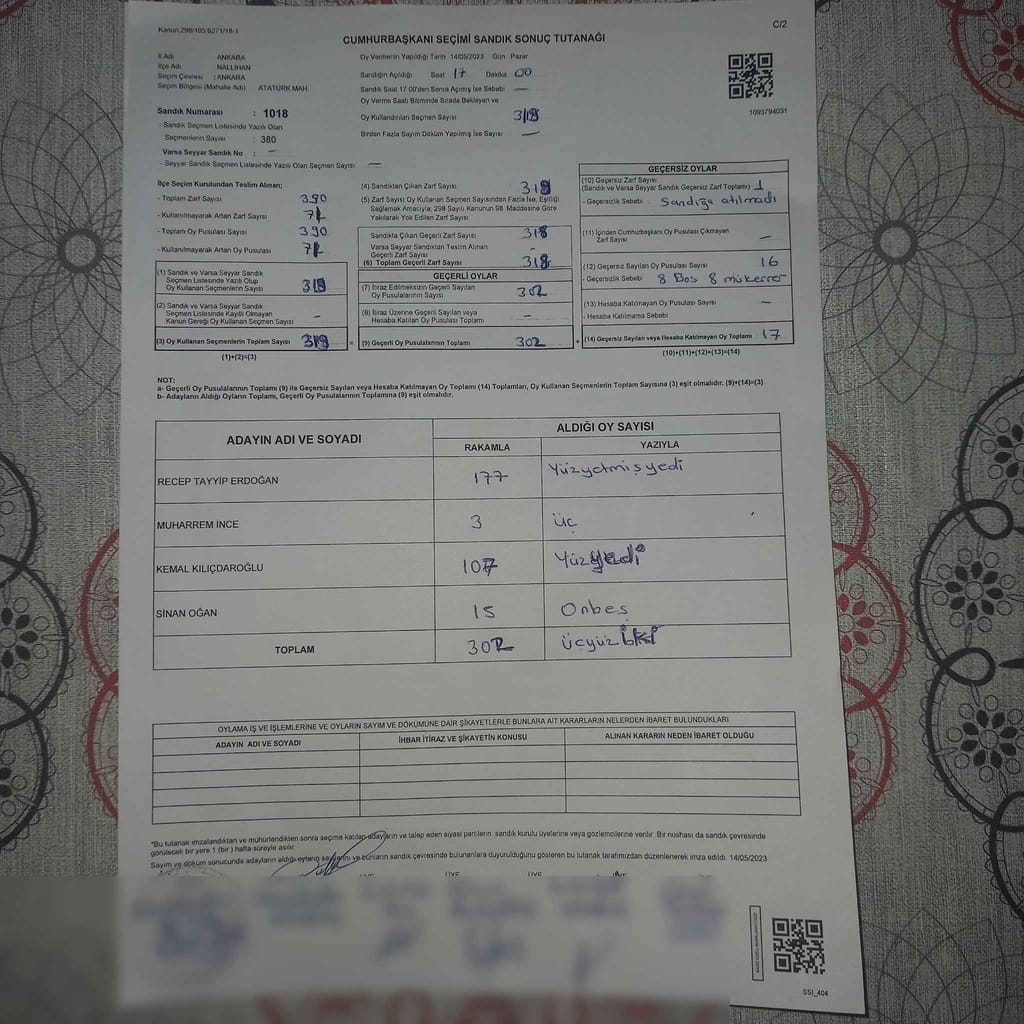 Kanun:298/105;6271/18-1
C/2
CUMHURBAŞKANI SEÇİMİ SANDIK SONUÇ TUTANAĞI
İl Adı ANKARA
İlçe Adı NALLIHAN
Seçim Çevresi : ANKARA
Seçim Bölgesi (Mahalle Adı) ATATÜRK MAH.
Oy Vermenin Yapıldığı Tarih :14/05/2023 Gün Pazar
Sandığın Açıldığı Saat 17 Dakika 00
Sandık Saat 17.00'den Sonra Açılmış İse Sebebi —
Oy Verme Saati Bitiminde Sırada Bekleyen ve
Oy Kullandırılan Seçmen Sayısı
Birden Fazla Sayım Döküm Yapılmış İse Sayısı —
1093794031
Sandık Numarası : 1018
- Sandık Seçmen Listesinde Yazılı Olan
Seçmenlerin Sayısı : 380
Varsa Seyyar Sandık No : —
- Seyyar Sandık Seçmen Listesinde Yazılı Olan Seçmen Sayısı: —
İlçe Seçim Kurulundan Teslim Alınan;
- Toplam Zarf Sayısı 390
- Kullanılmayarak Artan Zarf Sayısı
- Toplam Oy Pusulası Sayısı 390
- Kullanılmayarak Artan Oy Pusulası
(1) Sandık ve Varsa Seyyar Sandık
Seçmen Listesinde Yazılı Olup
Oy Kullanan Seçmenlerin Sayısı
(2) Sandık ve Varsa Seyyar Sandık
Seçmen Listesinde Kayıtlı Olmayan
Kanun Gereği Oy Kullanan Seçmen Sayısı -
(3) Oy Kullanan Seçmenlerin Toplam Sayısı 319 =
(1)+(2)=(3)
(4) Sandıktan Çıkan Zarf Sayısı
(5) Zarf Sayısı Oy Kullanan Seçmen Sayısından Fazla İse, Eşitliği
Sağlamak Amacıyla; 298 Sayılı Kanunun 98. Maddesine Göre
Yakılarak Yok Edilen Zarf Sayısı
Sandıkta Çıkan Geçerli Zarf Sayısı 318
Varsa Seyyar Sandıktan Teslim Alınan
Geçerli Zarf Sayısı -
(6) Toplam Geçerli Zarf Sayısı 318
GEÇERLİ OYLAR
(7) İtiraz Edilmeksizin Geçerli Sayılan
Oy Pusulalarının Sayısı 302
(8) İtiraz Üzerine Geçerli Sayılan veya
Hesaba Katılan Oy Pusulası Toplamı -
(9) Geçerli Oy Pusulalarının Toplamı 302 +
GEÇERSİZ OYLAR
(10) Geçersiz Zarf Sayısı
(Sandık ve Varsa Seyyar Sandık Geçersiz Zarf Toplamı) 1
- Geçersizlik Sebebi : Sandığa atılmadı
(11) İçinden Cumhurbaşkanı Oy Pusulası Çıkmayan
Zarf Sayısı —
(12) Geçersiz Sayılan Oy Pusulası Sayısı 16
- Geçersizlik Sebebi : 8 Boş 8 mükerrer
(13) Hesaba Katılmayan Oy Pusulası Sayısı —
- Hesaba Katılmama Sebebi
(14) Geçersiz Sayılan veya Hesaba Katılmayan Oy Toplamı 17
(10)+(11)+(12)+(13)=(14)
NOT:
a- Geçerli Oy Pusulalarının Toplamı (9) ile Geçersiz Sayılan veya Hesaba Katılmayan Oy Toplamı (14) Toplamları, Oy Kullanan Seçmenlerin Toplam Sayısına (3) eşit olmalıdır. (9)+(14)=(3)
b- Adayların Aldığı Oyların Toplamı, Geçerli Oy Pusulalarının Toplamına (9) eşit olmalıdır.
ADAYIN ADI VE SOYADI ALDIĞI OY SAYISI
RAKAMLA YAZIYLA
RECEP TAYYİP ERDOĞAN 177 Yüzyetmişyedi
MUHARREM İNCE 3 Üç
KEMAL KILIÇDAROĞLU 107 Yüzyedi
SİNAN OĞAN 15 Onbeş
TOPLAM 302 Üçyüz iki
OYLAMA İŞ VE İŞLEMLERİNE VE OYLARIN SAYIM VE DÖKÜMÜNE DAİR ŞİKAYETLERLE BUNLARA AİT KARARLARIN NELERDEN İBARET BULUNDUKLARI
ADAYIN ADI VE SOYADI İHBAR İTİRAZ VE ŞİKAYETİN KONUSU ALINAN KARARIN NEDEN İBARET OLDUĞU
*Bu tutanak imzalandıktan ve mühürlendikten sonra seçime katılan adayların ve talep eden siyasi partilerin sandık kurulu üyelerine veya gözlemcilerine verilir. Bir nüshası da sandık çevresinde
görülecek bir yere 1 (bir) hafta süreyle asılır.
Sayım ve döküm sonucunda adayların aldığı oyların sayılarını ve bunların sandık çevresinde bulunanlara duyurulduğunu gösteren bu tutanak tarafımızdan düzenlenerek imza edildi. 14/05/2023
SSİ_404